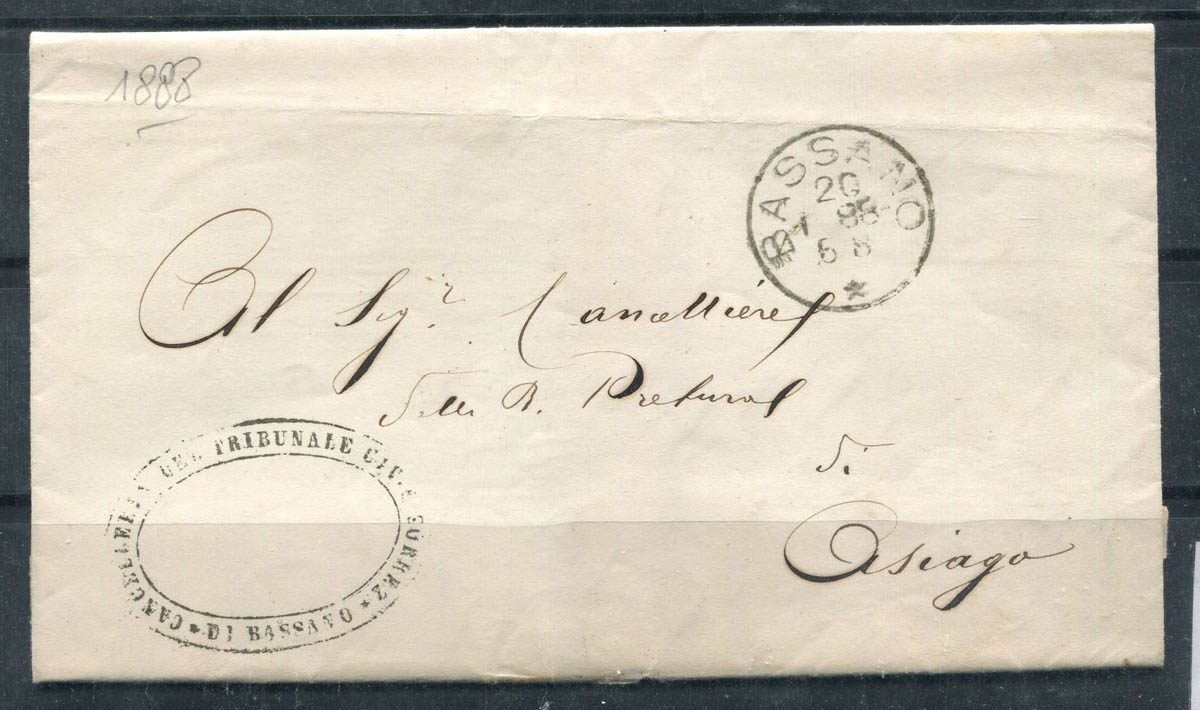 1888
BASSANO
20
88
Al Sig.r Cancelliere
della R. Pretura
di
Asiago
CANCELLERIA DEL TRIBUNALE CIV. E CORREZ.
* DI BASSANO *